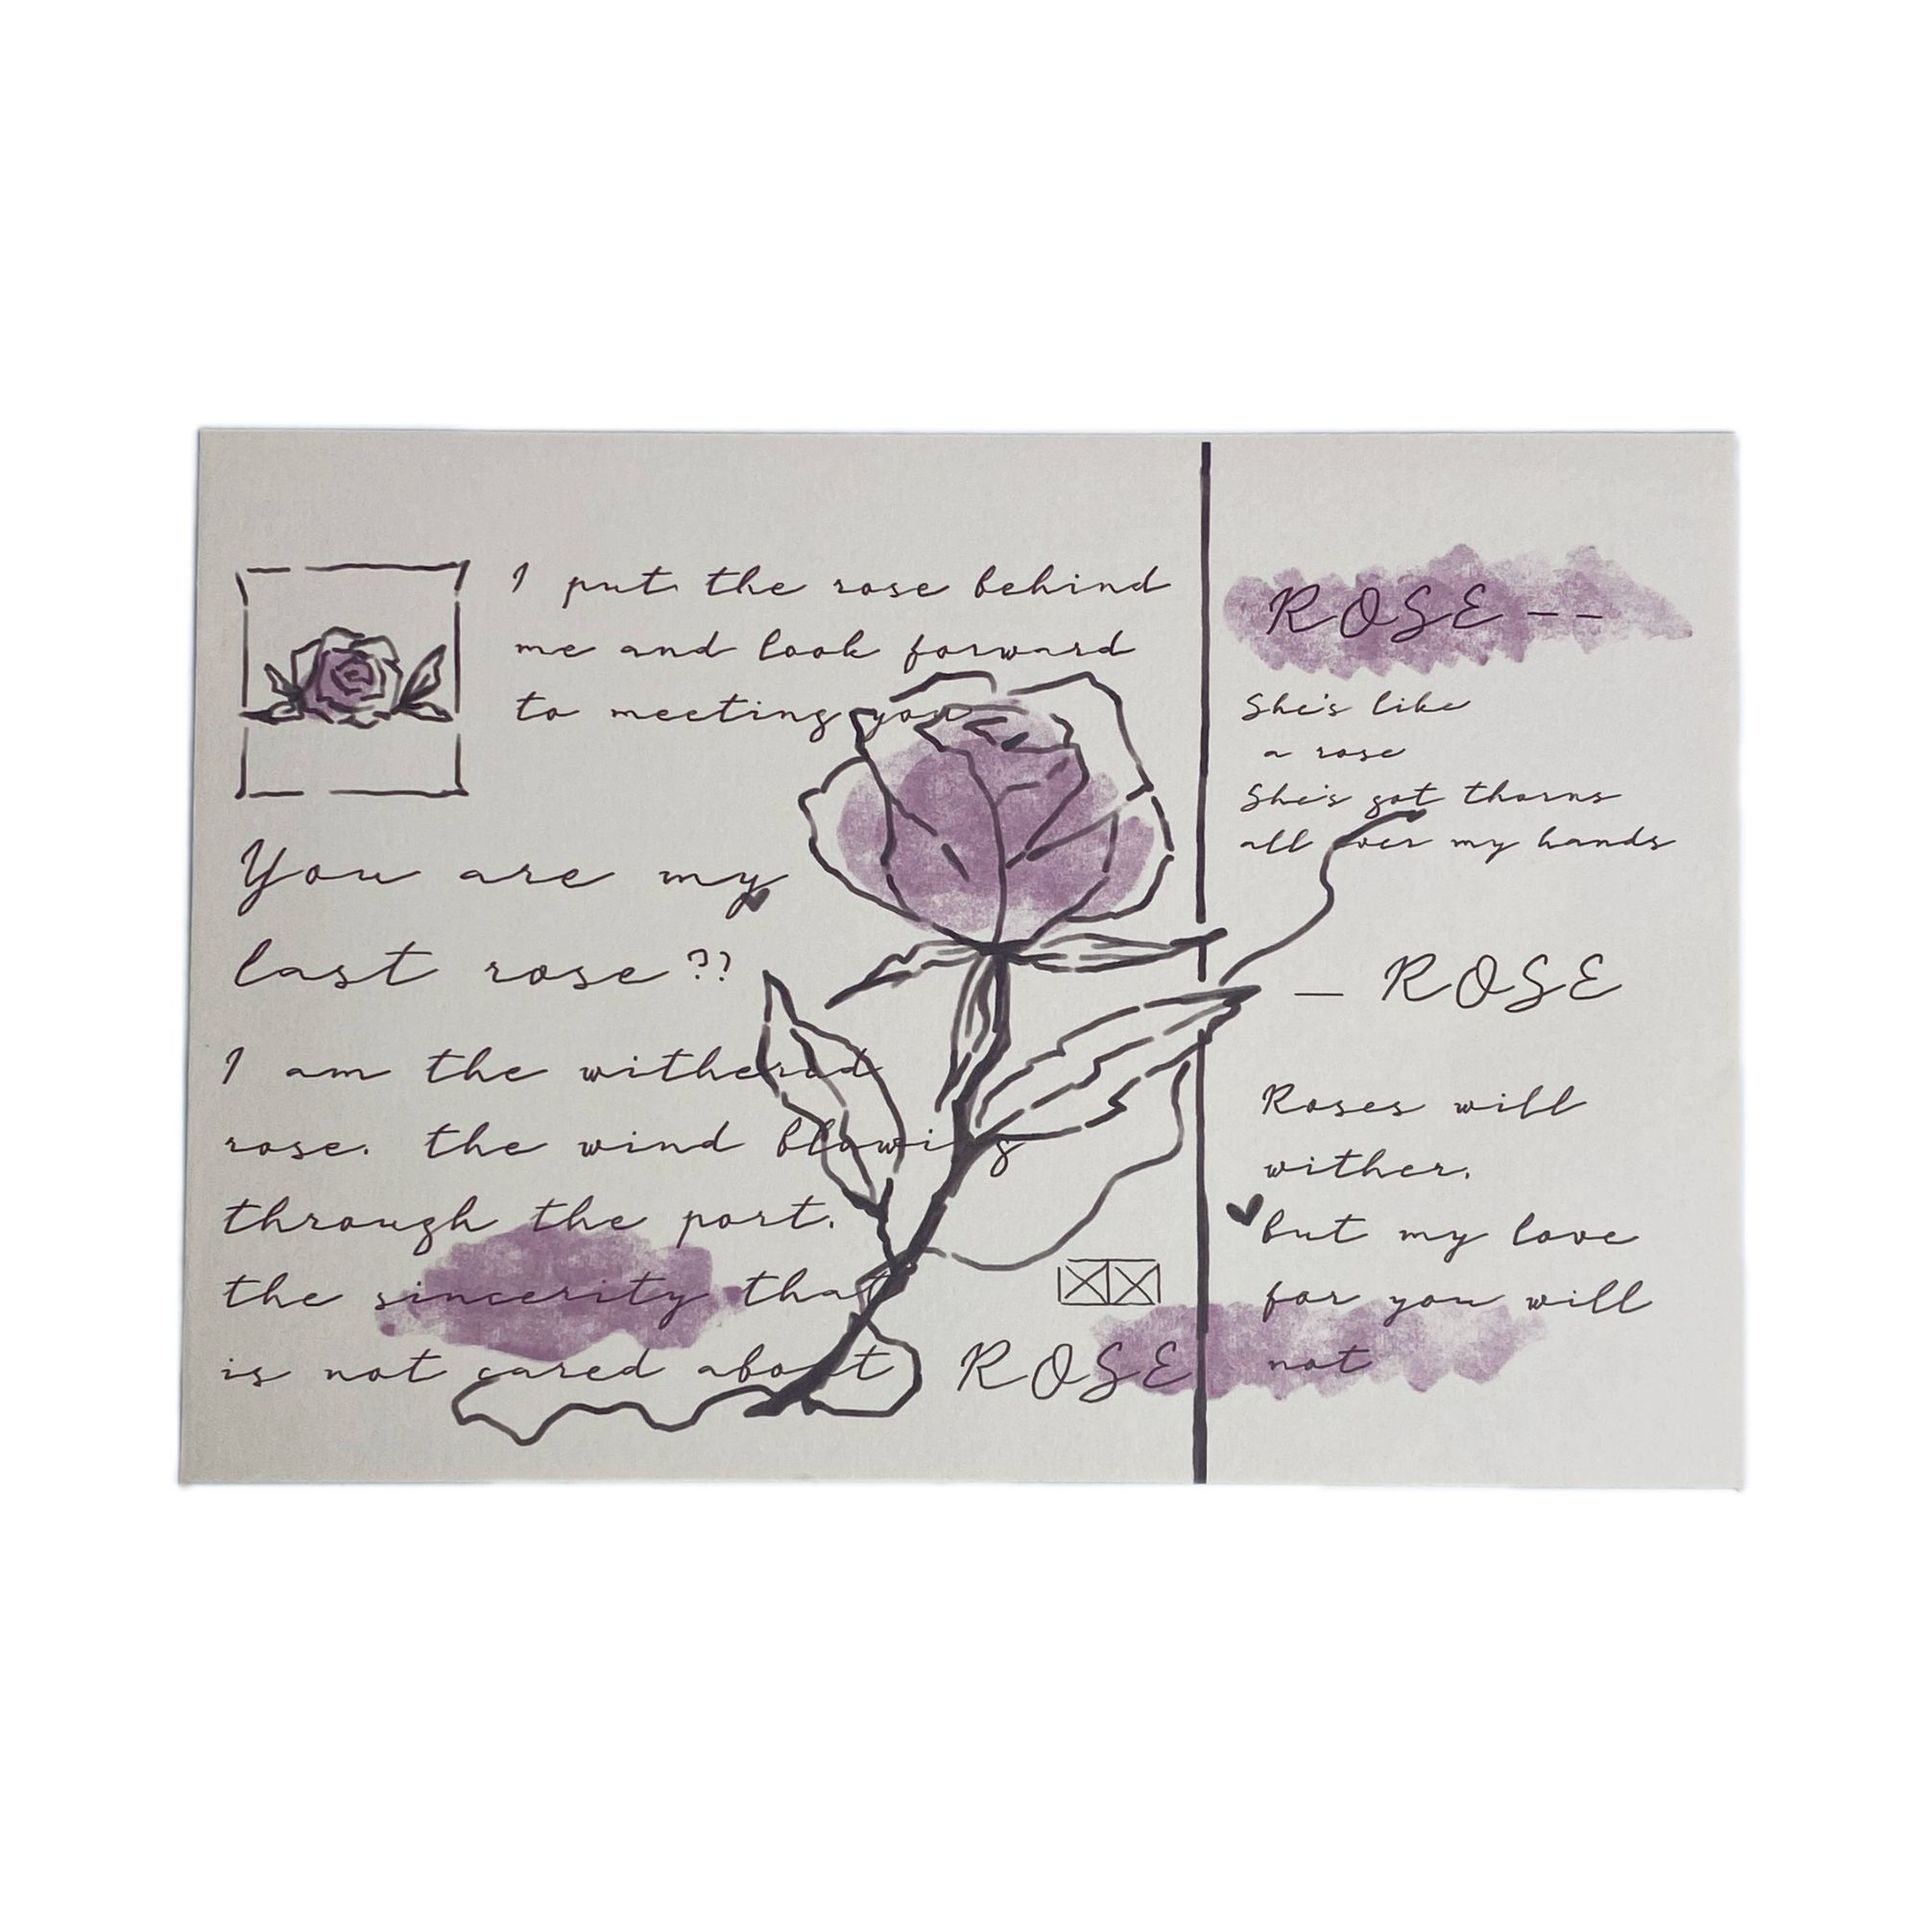 I put the rose behind
me and look forward
to meeting you
You are my
last rose??
I am the witherad
rose. the wind blowing
through the port.
the sincerity that
is not cared about
ROSE
ROSE--
She's like
a rose
She's got thorns
all over my hands
— ROSE
Roses will
wither.
but my love
for you will
not